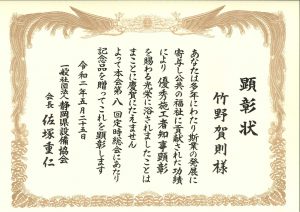 顕彰状
竹野賀則様
あなたは多年にわたり斯業の発展に
寄与し公共の福祉に貢献された功績
により 優秀施工者知事顕彰
を賜わる光栄に浴されましたことは
まことに慶賀にたえません
よって本会第八回定時総会にあたり
記念品を贈ってこれを顕彰します
令和二年五月二十五日
一般社団法人 静岡県設備協会
会長 佐塚重仁